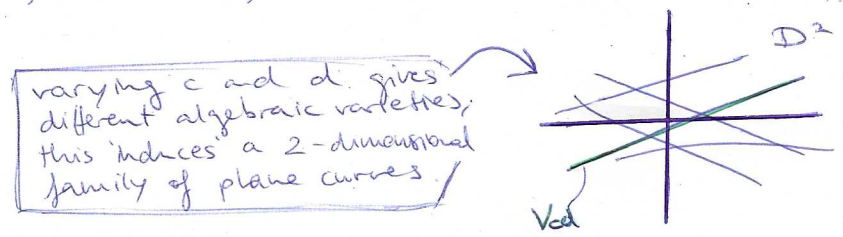 varying c and d gives
different algebraic varieties,
this induces a 2-dimensional
family of plane curves.
D²
Vcd